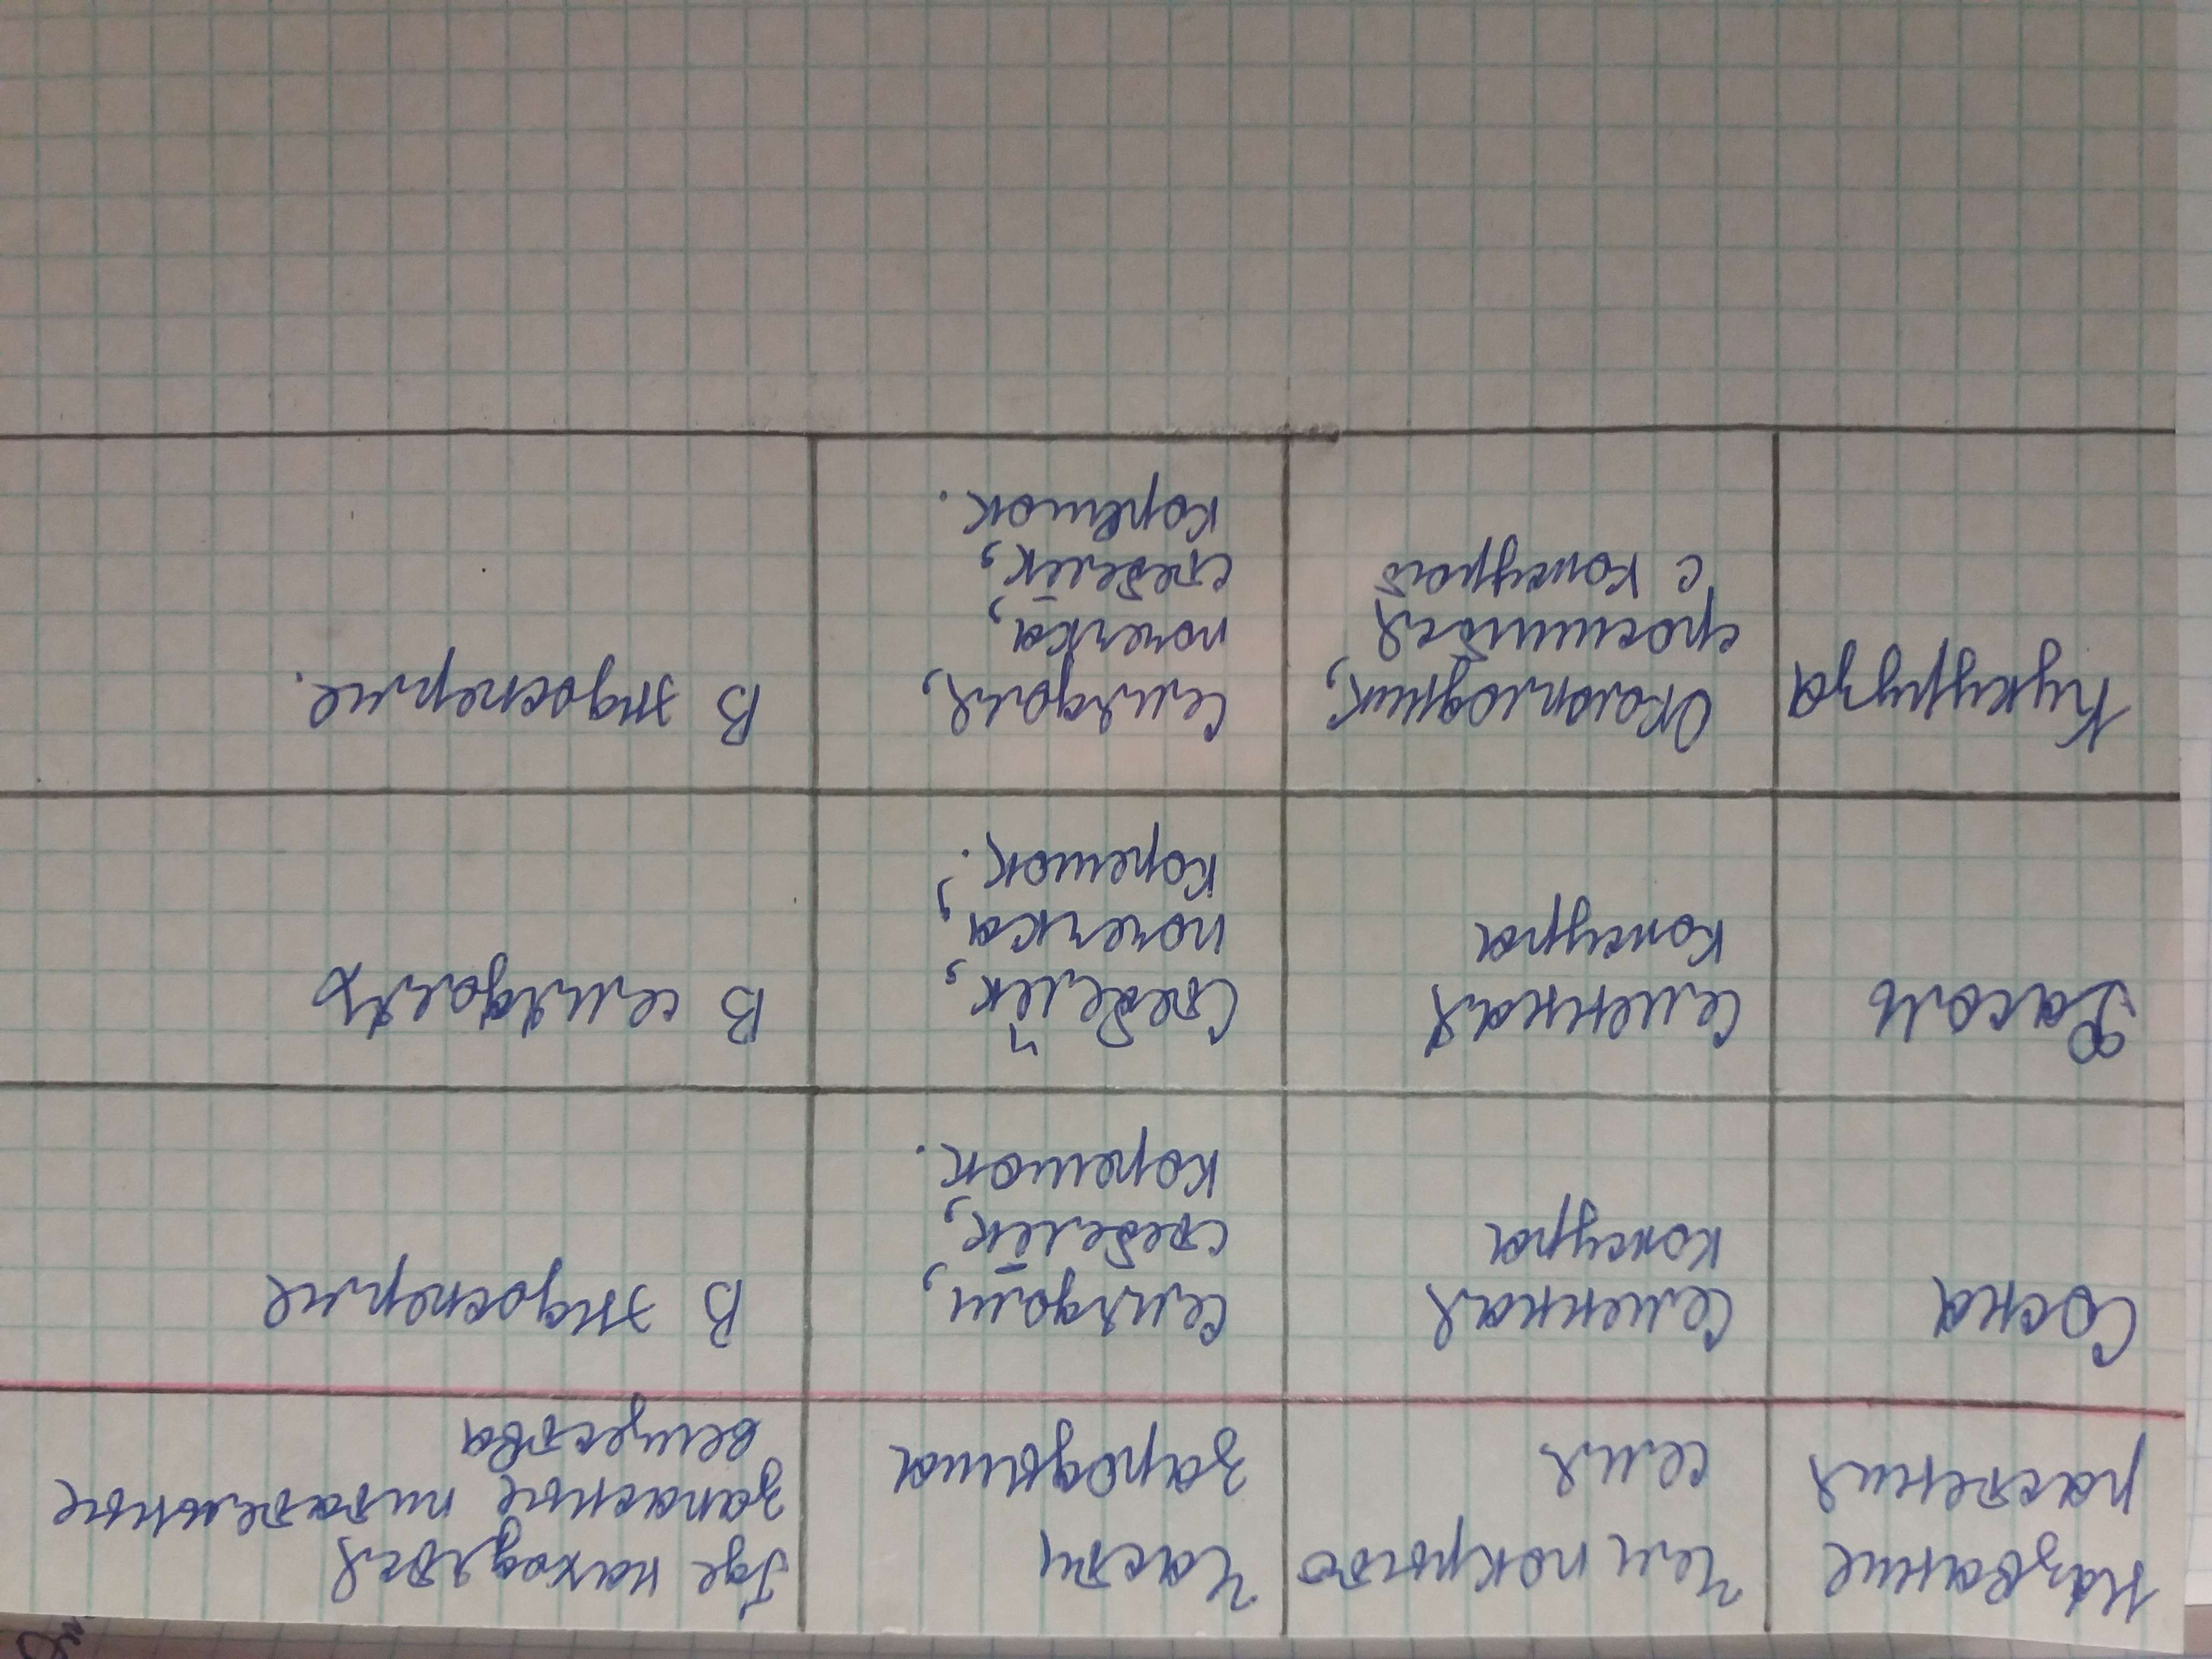 Название
растения
Чем покрыто
семя
Части
зародыша
Где находятся
запасные питательные
вещества
Сосна
Семенная
кожура
Семядоли,
стебелёк,
корешок.
В эндосперме
Фасоль
Семенная
кожура
Стебелёк,
почечка,
корешок.
В семядолях
Кукуруза
Околоплодник,
сросшийся
с кожурой
Семядоля,
почечка,
стебелёк,
корешок.
В эндосперме.